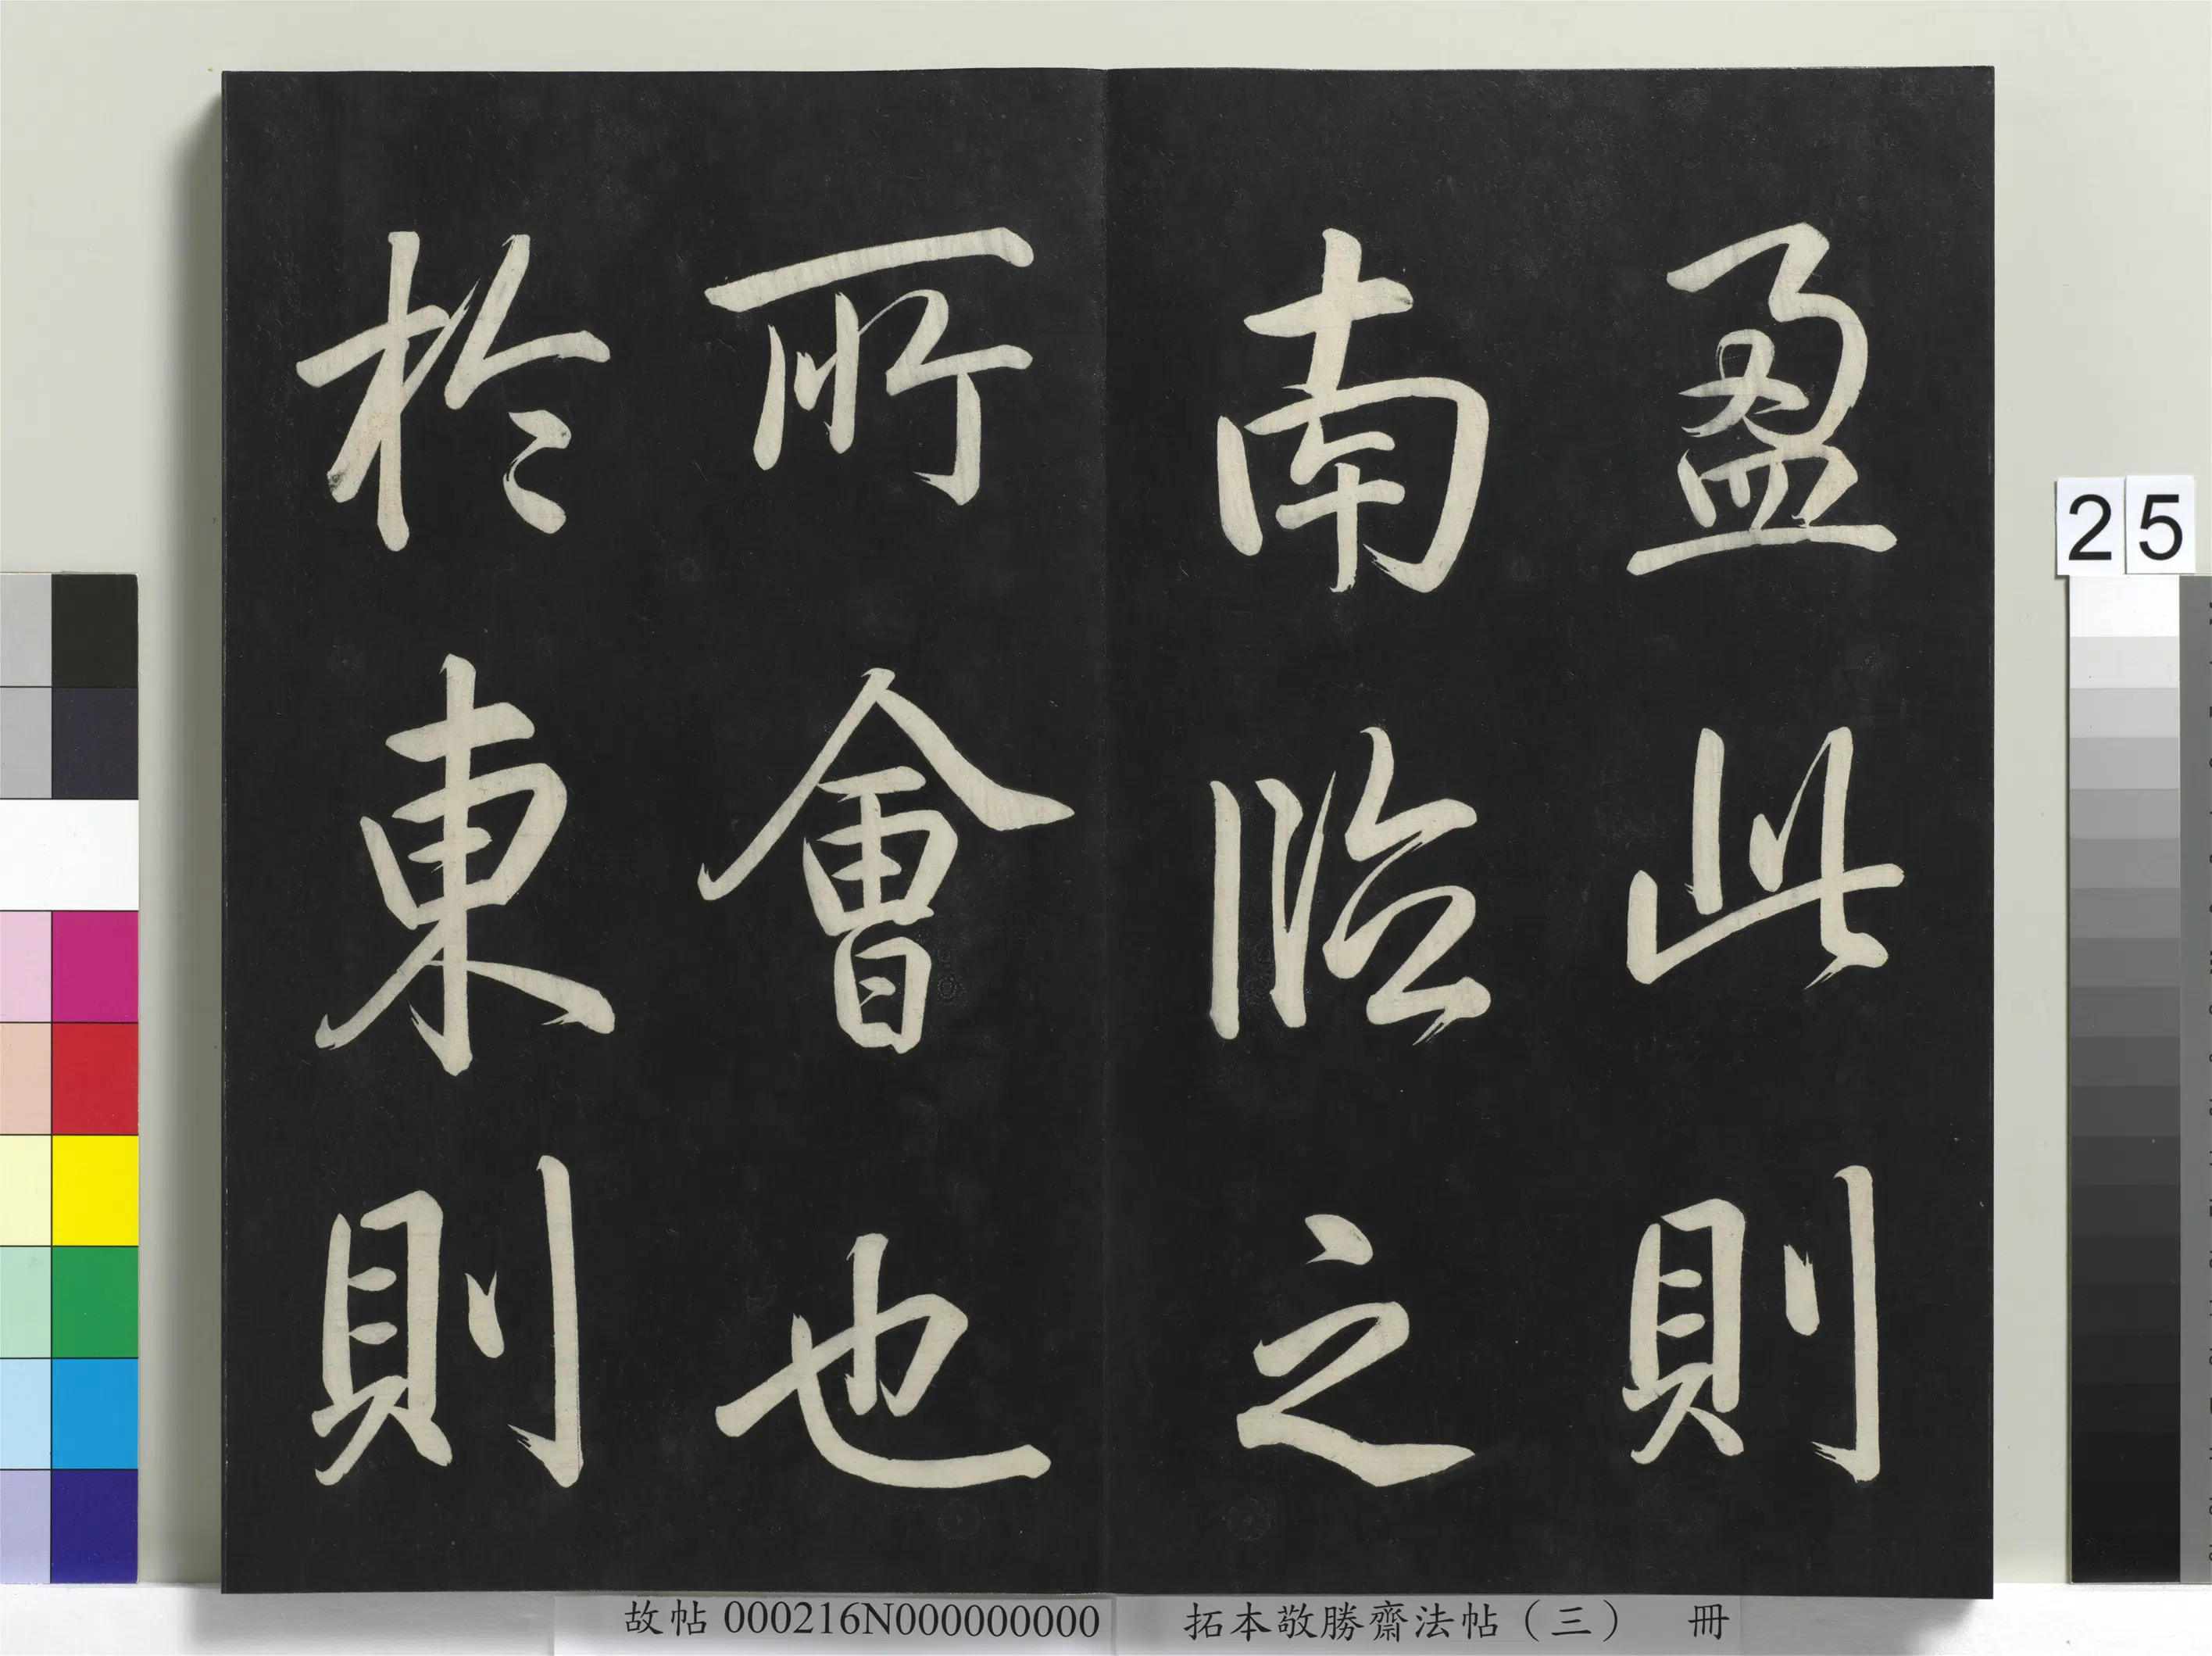 盈此則
南臨之
所會也
於東則
25
故帖 000216N000000000
拓本敬勝齋法帖（三） 冊